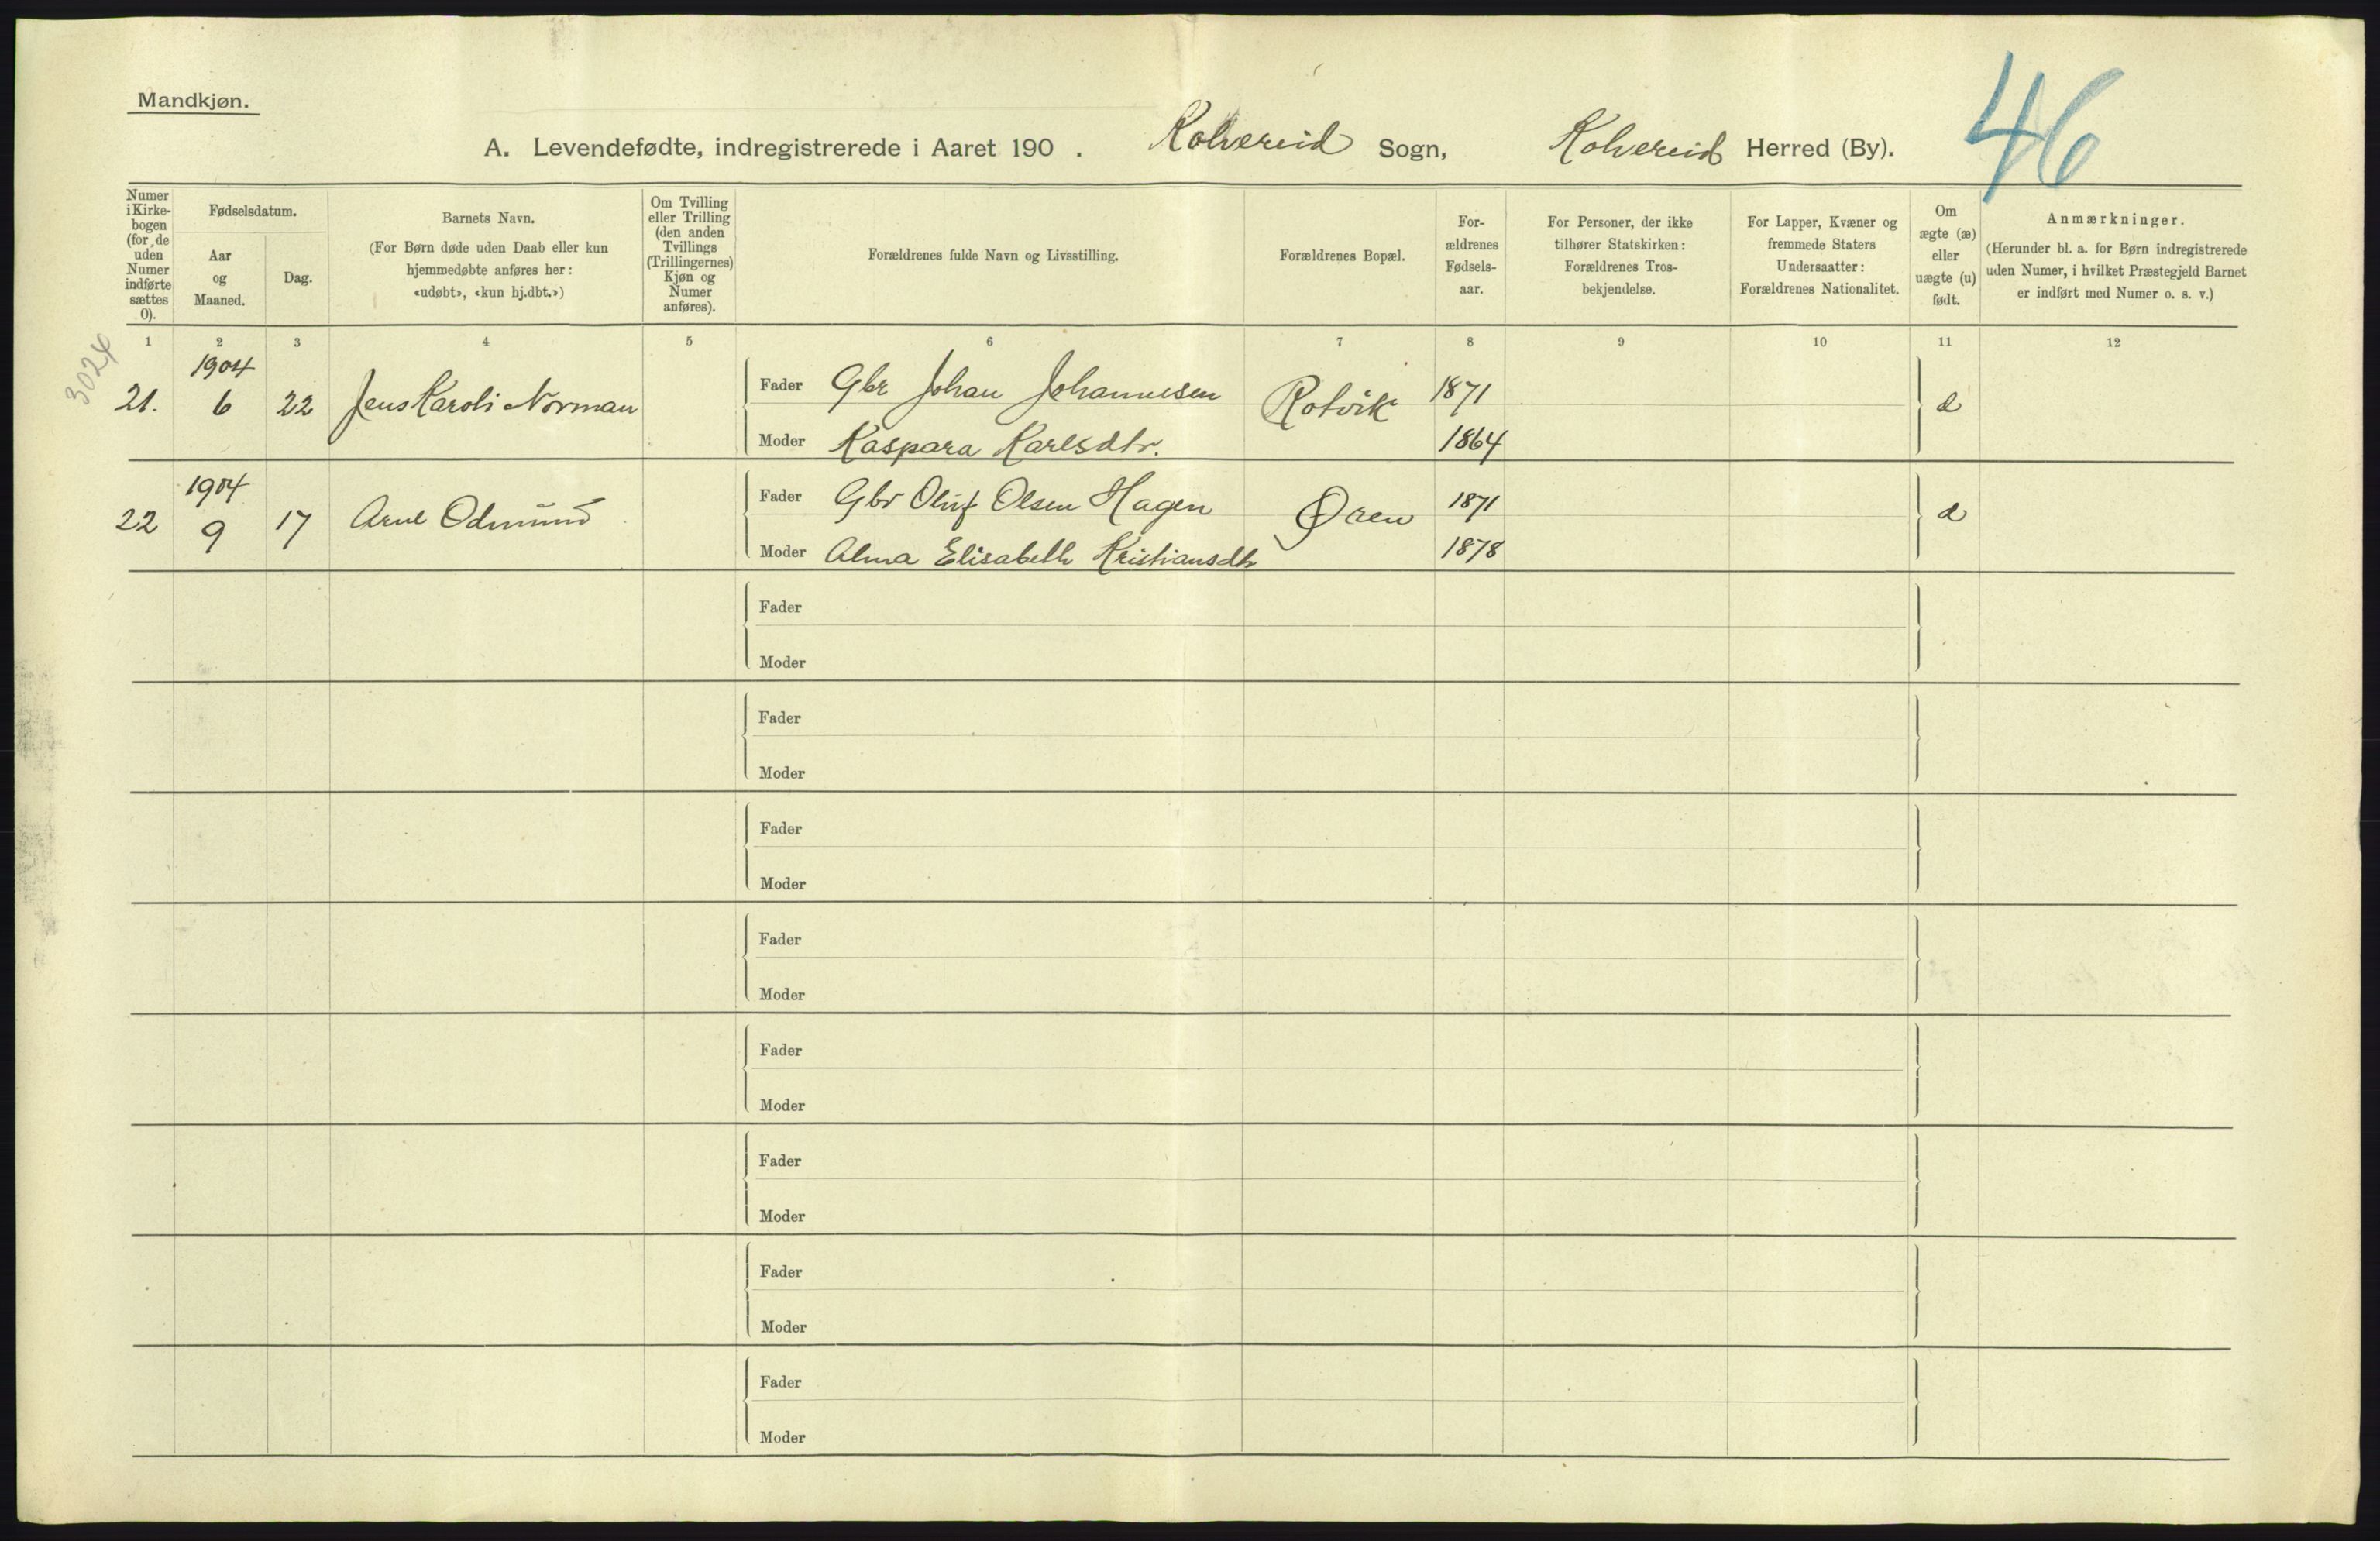 Mandkjøn.
46
A. Levendefødte, indregistrerede i Aaret 190 . Kolvereid Sogn, Kolvereid Herred (By).
Numer i Kirke-bogen (for de uden Numer indførte sættes 0).
Fødselsdatum.
Aar og Maaned.
Dag.
Barnets Navn.
(For Børn døde uden Daab eller kun hjemmedøbte anføres her: «udøbt», «kun hj.dbt.»)
Om Tvilling eller Trilling (den anden Tvillings (Trillingernes) Kjøn og Numer anføres).
Forældrenes fulde Navn og Livsstilling.
Forældrenes Bopæl.
For-ældrenes Fødsels-aar.
For Personer, der ikke tilhører Statskirken: Forældrenes Tros-bekjendelse.
For Lapper, Kvæner og fremmede Staters Undersaatter: Forældrenes Nationalitet.
Om ægte (æ) eller uægte (u) født.
Anmærkninger.
(Herunder bl. a. for Børn indregistrerede uden Numer, i hvilket Præstegjeld Barnet er indført med Numer o. s. v.)
1 2 3 4 5 6 7 8 9 10 11 12
3024
1904
21. 6 22 Jens Karoli Norman Fader Gbr Johan Johannesen Rotvik 1871 æ
Moder Kaspara Karlsdtr. 1864
1904
22 9 17 Arne Odmund Fader Gbr Oluf Olsen Hagen Øren 1871 æ
Moder Alma Elisabeth Kristiansdtr 1878
Fader
Moder
Fader
Moder
Fader
Moder
Fader
Moder
Fader
Moder
Fader
Moder
Fader
Moder
Fader
Moder